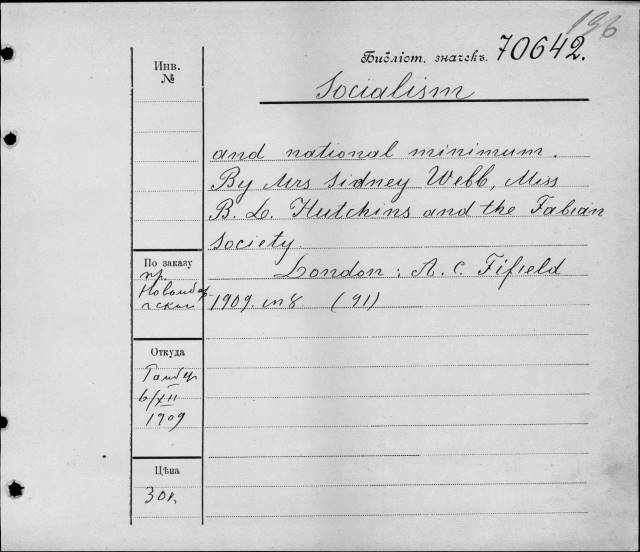 196
Библіот. значекъ. 70642.
Инв.
№
Socialism
and national minimum.
By Mrs Sidney Webb, Miss
B. L. Hutchins and the Fabian
Society.
London: A. C. Fifield
1909. in 8 (91)
По заказу
пр.
Откуда
6/XII
1909
Цѣна
30к